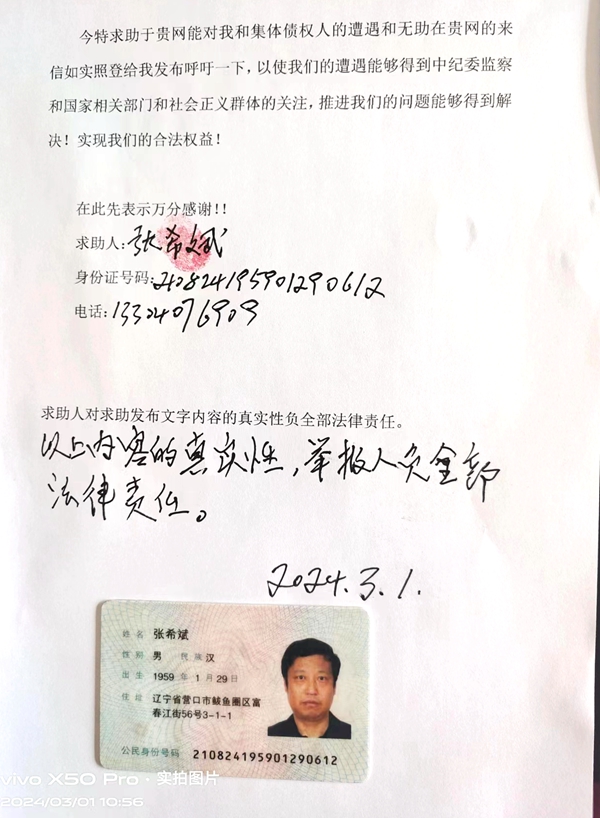 今特求助于贵网能对我和集体债权人的遭遇和无助在贵网的来
信如实照登给我发布呼吁一下，以使我们的遭遇能够得到中纪委监察
和国家相关部门和社会正义群体的关注，推进我们的问题能够得到解
决！实现我们的合法权益！
在此先表示万分感谢！！
求助人：张希斌
身份证号码：210824195901290612
电话：13324076909
求助人对求助发布文字内容的真实性负全部法律责任。
以上内容的真实性，举报人负全部
法律责任。
2024.3.1.
姓名 张希斌
性别 男 民族 汉
出生 1959 年 1 月 29 日
住址 辽宁省营口市鲅鱼圈区富
春江街56号3-1-1
公民身份号码 210824195901290612
vivo X50 Pro · 实拍图片
2024/03/01 10:56